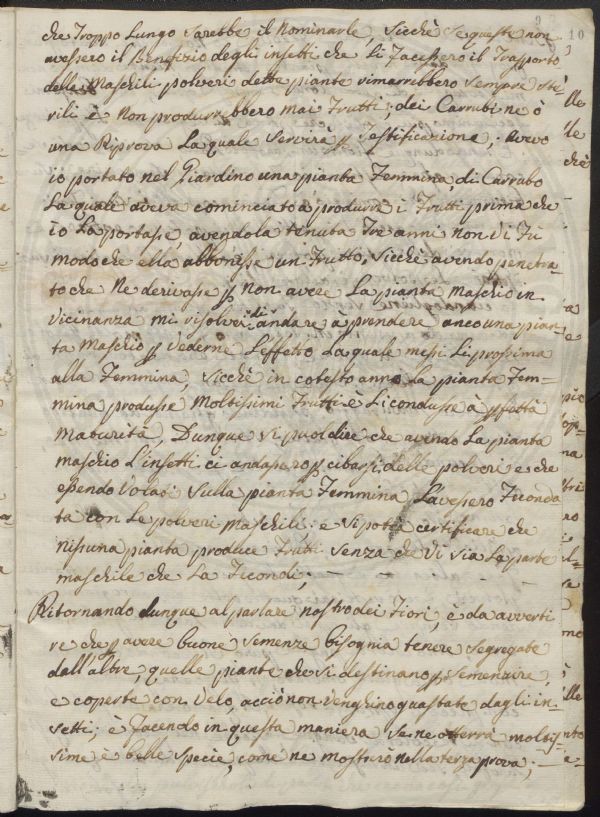 10
che troppo lungo sarebbe il nominarle sicchè se queste non
avessero il Benefizio degli insetti che li facessero il trasporto
delle Maschili polveri dette piante rimarrebbero sempre ste-
rili è non produrrebbero mai frutti; dei Carrubi ne ò
una Riprova la quale servirà p testificazione; avevo
io portato nel Giardino una pianta femmina, di Carrubo
la quale aveva cominciato à produrre i frutti prima che
io la portasse, avendola tenuta tre anni non vi fù
modo che ella abbonisse un frutto, sicchè avendo penetra-
to che ne derivasse p non avere la pianta maschio in
vicinanza mi risolvei di andare à prendere anco una pian-
ta maschio p vederne l'effetto la quale messi li prossima
alla femmina, sicchè in cotesto anno la pianta fem=
mina produsse moltissimi frutti è li condusse à pfetta
maturità, Dunque si puol dire che avendo la pianta
maschio l'insetti ci andassero p cibarsi delle polveri e che
essendo volati sulla pianta femmina l'avessero feconda
ta con le polveri maschili: e si potrà certificare che
nissuna pianta produce frutti senza che vi sia la parte
maschile che la fecondi; — — — —
Ritornando dunque al parlare nostro dei fiori, è da avverti
re che p avere buone semenze bisognia tenere segregate
dall'altre, quelle piante che si destinano p semenzire,
e coperte con velo, acciò non venghino guastate dagli in-
setti; è facendo in questa maniera se ne otterrà moltis
sime è belle specie, come ne mostrerò nella terza prova; —